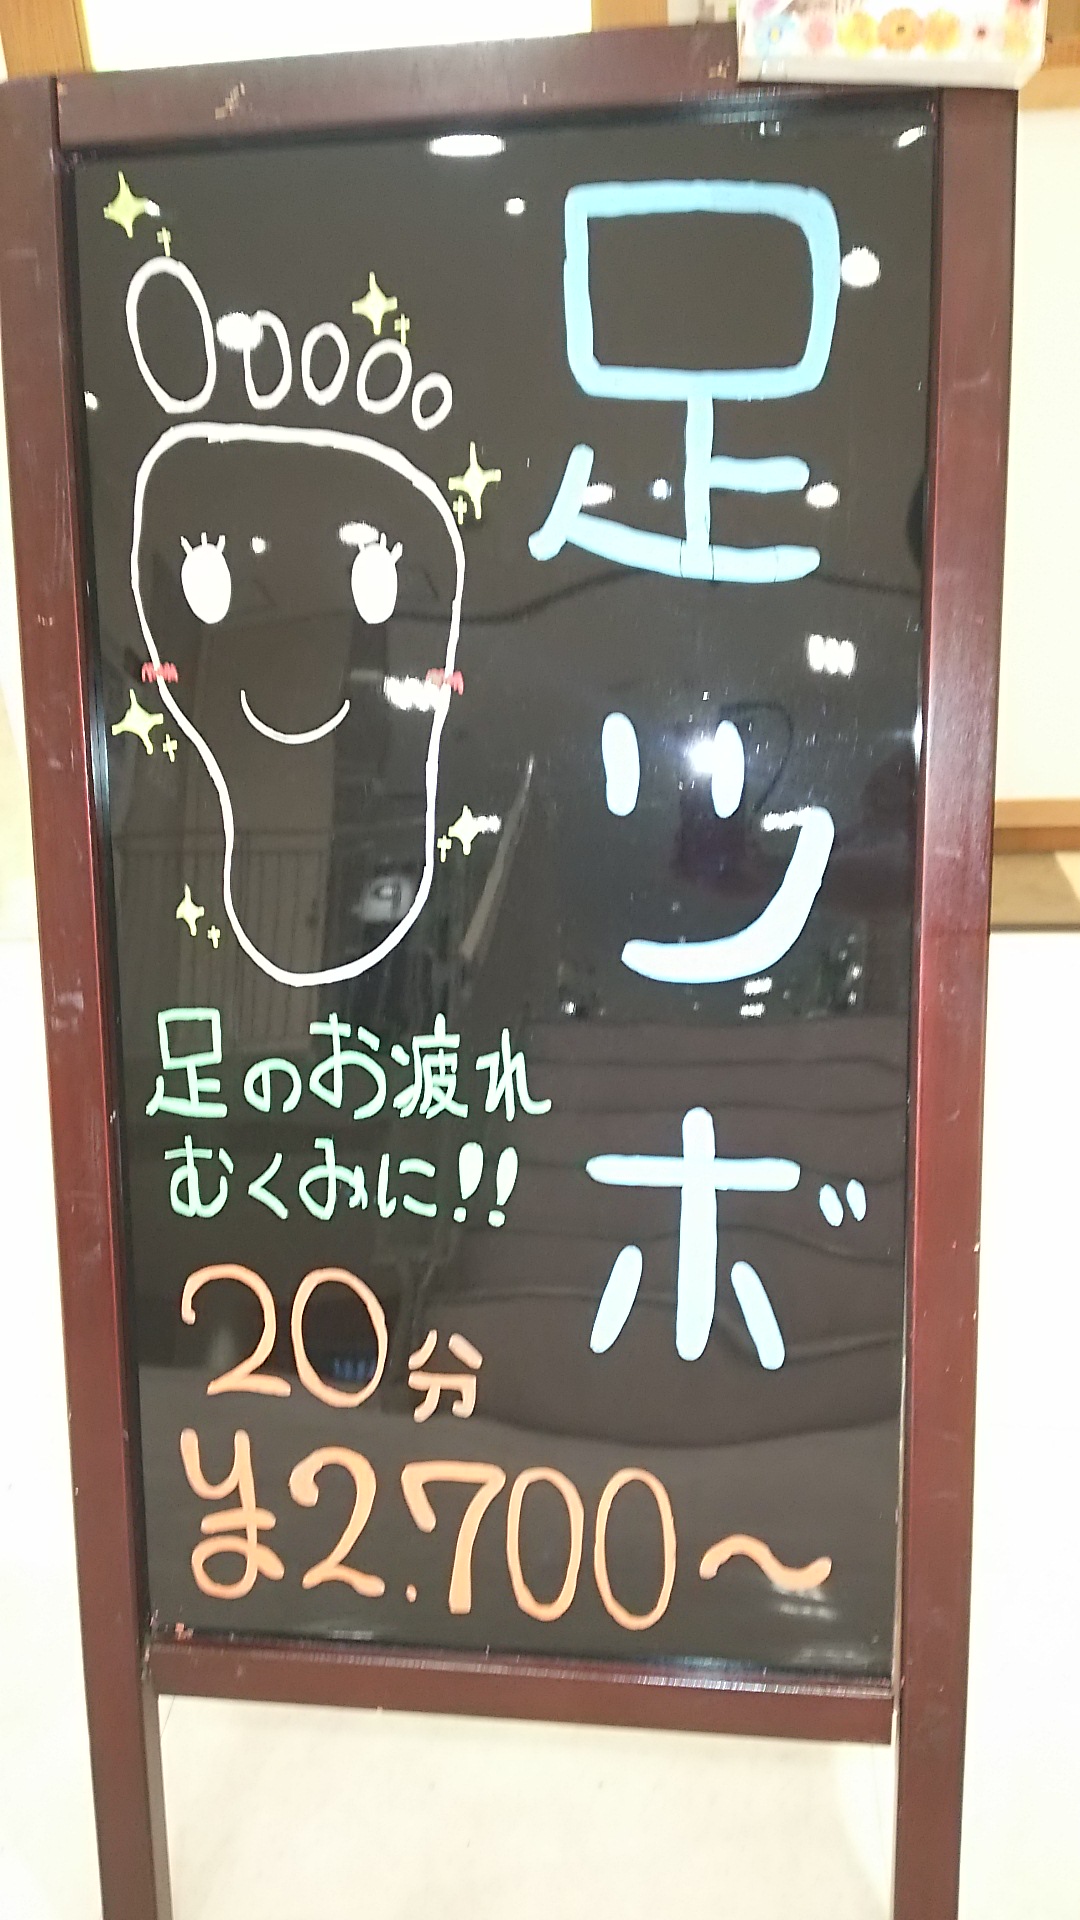 足ツボ
足のお疲れ
むくみに!!
20分
¥2.700~